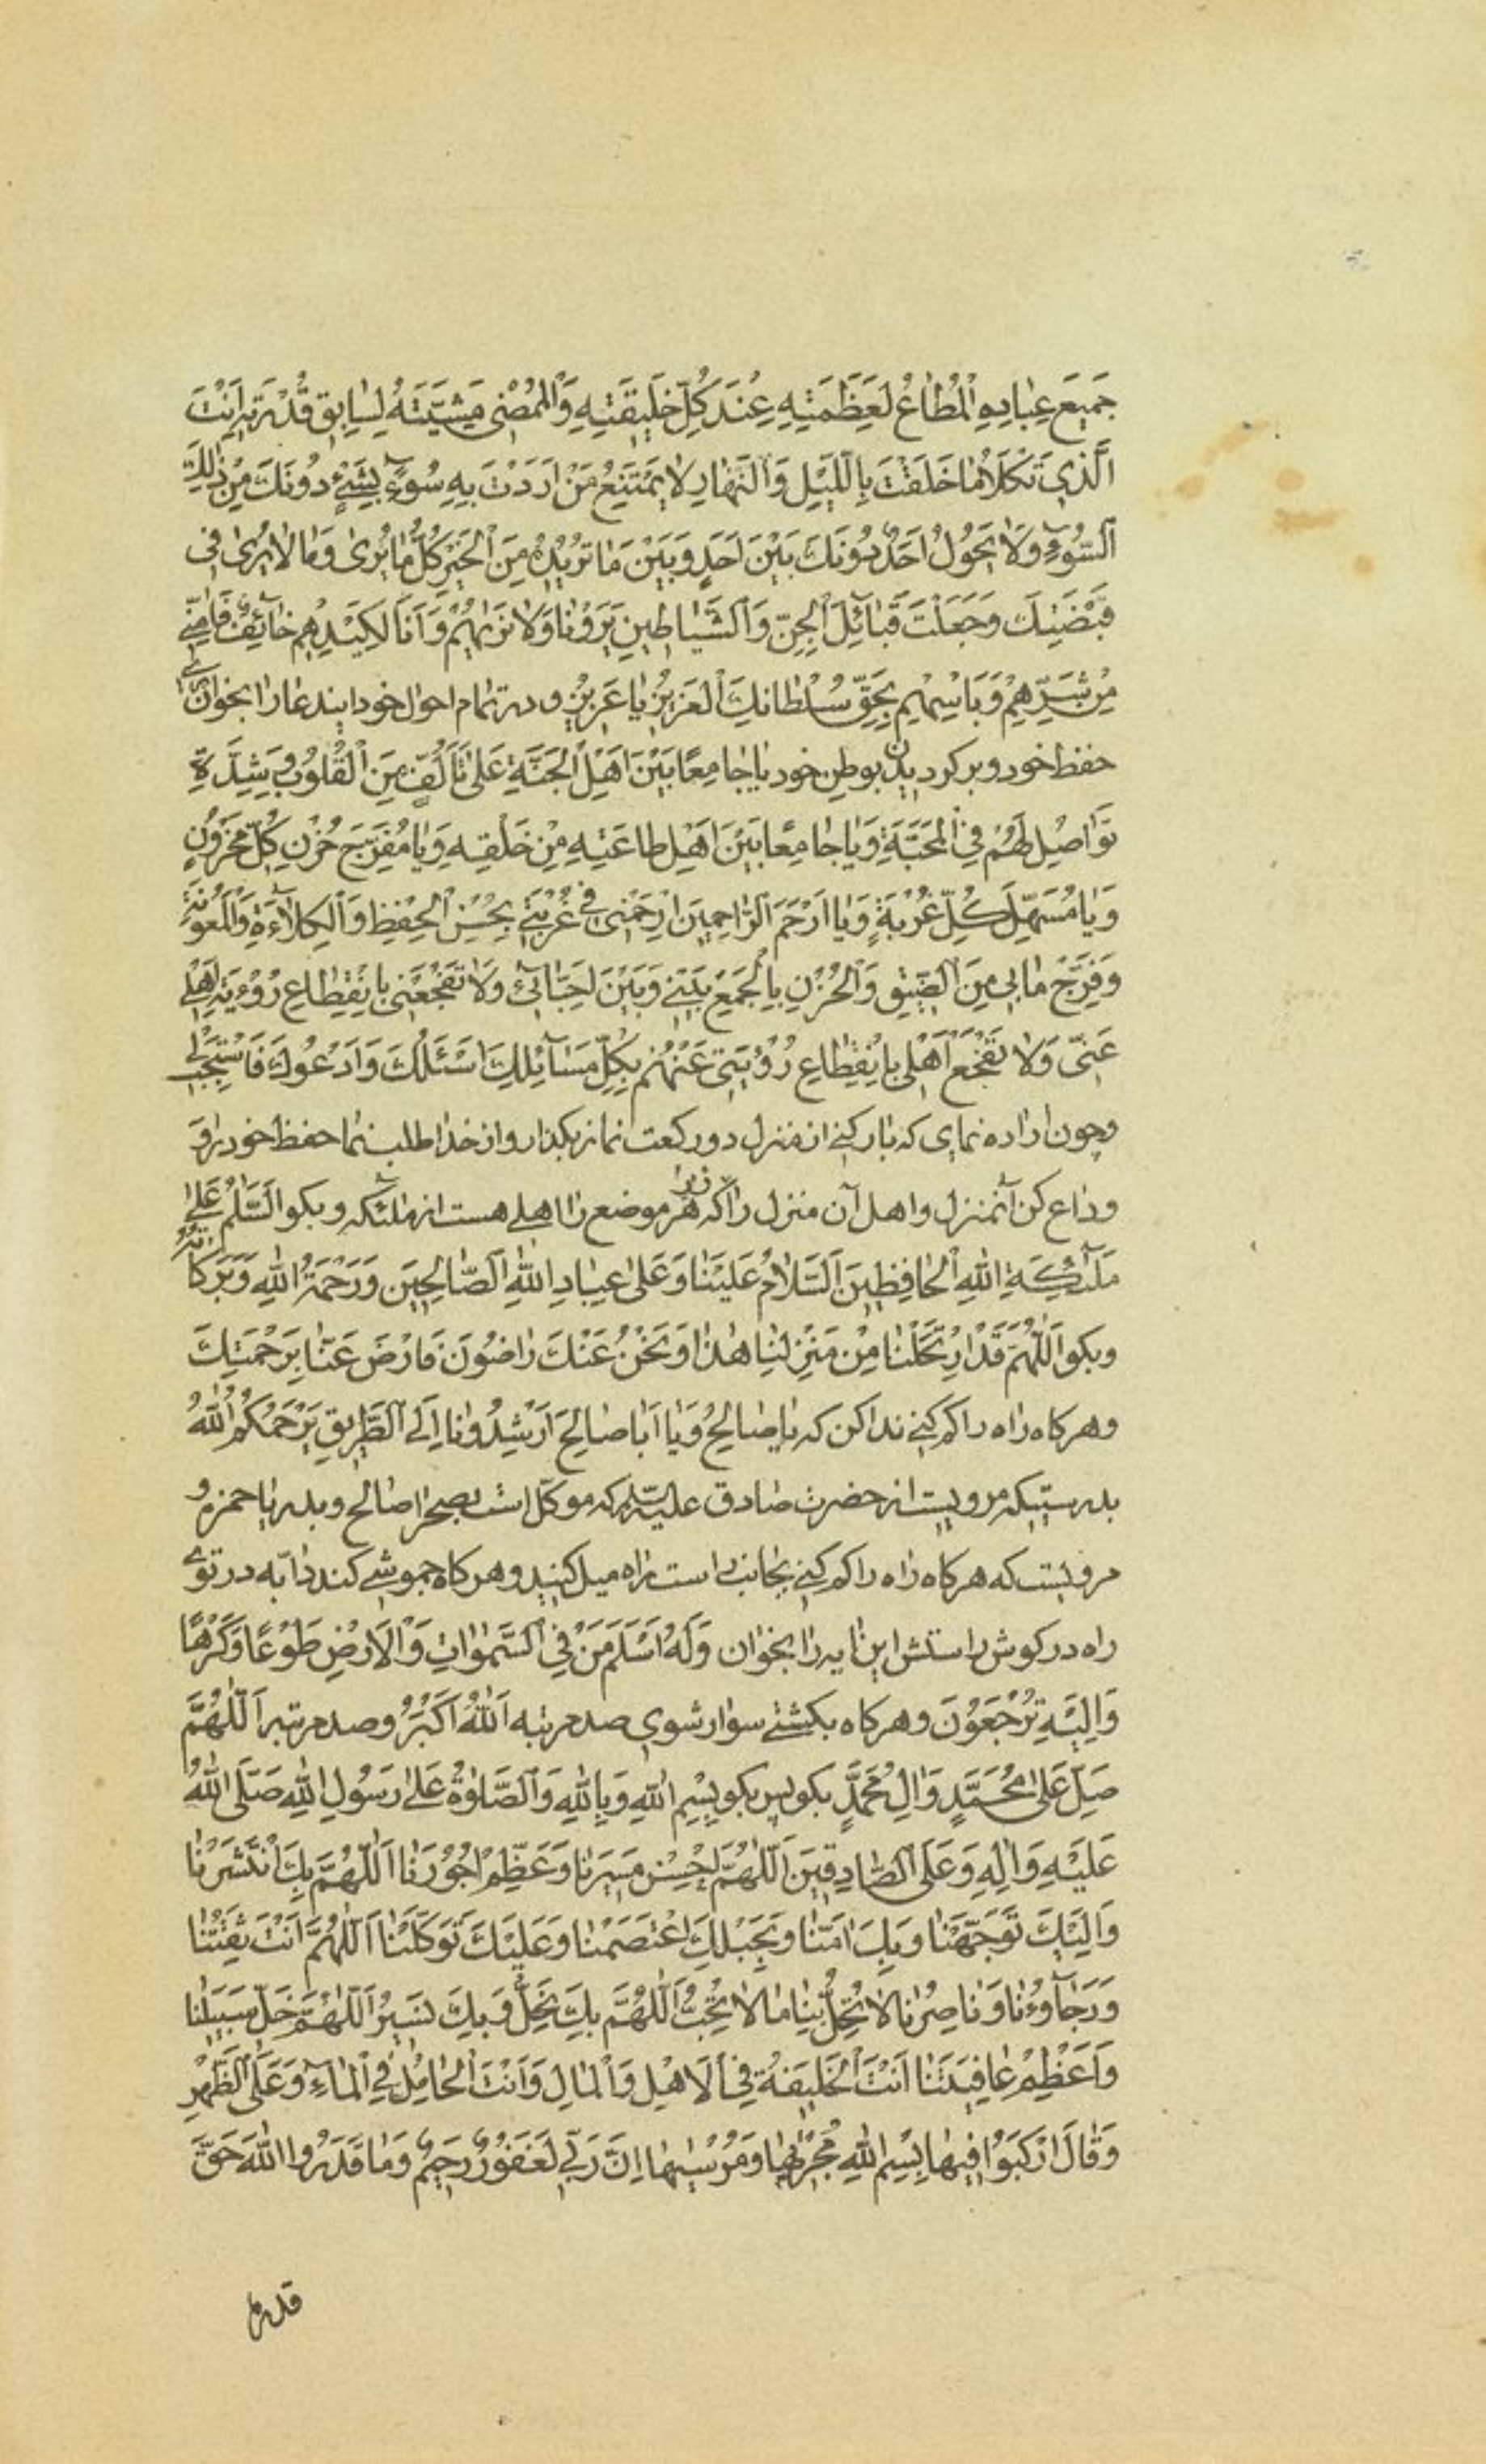 جَمیعَ عِبادِهِ اْلمُطاعُ لَعَظَمَتِهِ عِنْدَ كُلِّ خَليقَتِهِ وَاْلمُمْضٖى مَشِيَّتَهُ لِسٰابِقِ قُدْرَتِهِ اَنْتَ
الَّذي تَكْلَأُ ما خَلَقْتَ بِاللَّيْلِ وَالنَّهارِ لا يَمْتَنِعُ مَنْ اَرَدْتَ بِهِ سُوءً بِشَيْءٍ دُونَكَ مِنْ ذٰلِكَ
السُّوءِ وَلا يَحُولُ اَحَدٌ دُونَكَ بَيْنَ اَحَدٍ وَبَيْنَ مَا تُريدُهُ مِنَ الْخَيْرِ كُلُّ ما يُرىٰ وَما لا يُرىٰ في
قَبْضَتِكَ وَجَعَلْتَ قَبآئِلَ الْجِنِّ وَالشَّياطينِ يَرَوْنا وَلا نَرٰيهُمْ وَاَنَا لِكَيْدِهِم خآئِفٌ فَاٰمِنّي
مِنْ شَرِّهِمْ وَبَاْسِهِمِ بِحَقِّ سُلْطانِكَ الْعَزيزِ يا عَزيزُ و در تمام احوال خود ایندعا را بخوان برای
حفظ خود و برگردیدن بوطن خود یا جامِعًا بَيْنَ اَهْلِ الْجَنَّةِ عَلىٰ تَاَلُّفٍ مِنَ الْقُلُوبِ وَشِدَّةِ
تَواصُلٍ لَهُمْ فِي الْمَحَبَّةِ وَيا جامِعًا بَيْنَ اَهْلِ طاعَتِهِ مِنْ خَلْقِهِ وَيا مُفَرِّجَ حُزْنِ كُلِّ مَحْزُونٍ
وَيا مُسَهِّلَ كُلِّ غُرْبَةٍ وَيا اَرْحَمَ الرّاحِمينَ ارْحَمْني في غُرْبَتي بِحُسْنِ الْحِفْظِ وَالْكِلاءَةِ وَالْمَعُونَةِ
وَفَرِّجْ ما بي مِنَ الضّيقِ وَالْحُزْنِ بِالْجَمْعِ بَيْني وَبَيْنَ اَحِبّائي وَلا تَفْجَعْني بِانْقِطاعِ رُؤْيَةِ اَهْلي
عَنّي وَلا تَفْجَعْ اَهْلي بِانْقِطاعِ رُؤْيَتي عَنْهُمْ بِكُلِّ مَسآئِلِكَ اَسْئَلُكَ وَاَدْعُوكَ فَاسْتَجِبْ لي
وچون اراده نمای که بار کنی از منزل دو رکعت نماز بکذار و از خدا طلب نما حفظ خود را و
وداع کن آنمنزل و اهل آن منزل را که هر موضع را اهلی هست از ملئکه و بکو اَلسَّلٰمُ عَلىٰ
مَلٰٓئِكَةِ اللّٰهِ الْحافِظينَ اَلسَّلامُ عَلَيْنا وَعَلىٰ عِبادِ اللّٰهِ الصّالِحينَ وَرَحْمَةُ اللّٰهِ وَبَرَكاتُهُ
وبکو اَللّٰهُمَّ قَدِ ارْتَحَلْنا مِنْ مَنْزِلِنا هٰذا وَنَحْنُ عَنْكَ راضُونَ فَارْضَ عَنّا بِرَحْمَتِكَ
وهرکاه راه را کم کنی ندا کن که یا صالِحُ وَيا اَبا صالِحَ اَرْشِدُونا اِلَى الطَّريقِ يَرْحَمُكُمُ اللّٰهُ
بدرستیکه مرویست از حضرت صادق علیه السلام که موکّل است بصحرا صالح و بدریا حمزه و
مرویست که هرکاه راه را کم کنی بجانب راست راه میل کنید و هرکاه چموشی کند دابّه در توی
راه در کوش راستش این ایه را بخوان وَلَهُ اَسْلَمَ مَنْ فِي السَّمٰواتِ وَالْاَرْضِ طَوْعًا وَكَرْهًا
وَاِلَيْهِ تُرْجَعُونَ وهرکاه بکشتی سوار شوی صد مرتبه اَللّٰهُ اَكْبَرُ و صد مرتبه اَللّٰهُمَّ
صَلِّ عَلىٰ مُحَمَّدٍ وَاٰلِ مُحَمَّدٍ بکو پس بکو بِسْمِ اللّٰهِ وَبِاللّٰهِ وَالصَّلوٰةُ عَلىٰ رَسُولِ اللّٰهِ صَلَّى اللّٰهُ
عَلَيْهِ وَاٰلِهِ وَعَلَى الصّادِقينَ اَللّٰهُمَّ اَحْسِنْ مَسيرَنا وَعَظِّمْ اُجُورَنا اَللّٰهُمَّ بِكَ انْتَشَرْنا
وَاِلَيْكَ تَوَجَّهْنا وَبِكَ اٰمَنّا وَبِحَبْلِكَ اعْتَصَمْنا وَعَلَيْكَ تَوَكَّلْنا اَللّٰهُمَّ اَنْتَ ثِقَتُنا
وَرَجآؤُنا وَناصِرُنا لا تُحِلَّ بِنا ما لا تُحِبُّ اَللّٰهُمَّ بِكَ نَحِلُّ وَبِكَ نَسيرُ اَللّٰهُمَّ خَلِّ سَبيلَنا
وَاَعْظِمْ عافِيَتَنا اَنْتَ الْخَليفَةُ فِي الْاَهْلِ وَالْمالِ وَاَنْتَ الْحامِلُ فِي الْمآءِ وَعَلَى الظَّهْرِ
وَقالَ ارْكَبُوا فيها بِسْمِ اللّٰهِ مَجْرٰيها وَمُرْسٰيها اِنَّ رَبّي لَغَفُورٌ رَحيمٌ وَما قَدَرُوا اللّٰهَ حَقَّ
قدره